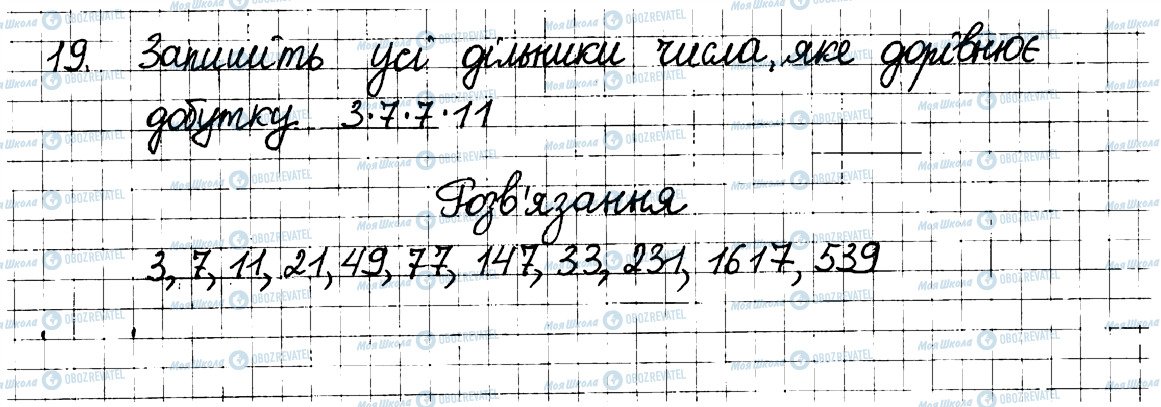 19. Запишіть усі дільники числа, яке дорівнює
добутку 3·7·7·11
Розв'язання
3, 7, 11, 21, 49, 77, 147, 33, 231, 1617, 539